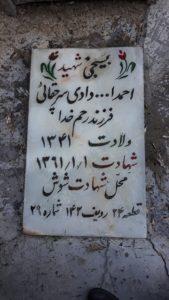 بسیجی شهید
احمدا... دادی سرخانی
فرزند رحم خدا
ولادت ۱۳۴۱
شهادت ۱۳۶۱/۱/۱
محل شهادت شوش
قطعه ۲۴ ردیف ۱۴۲ شماره ۲۹